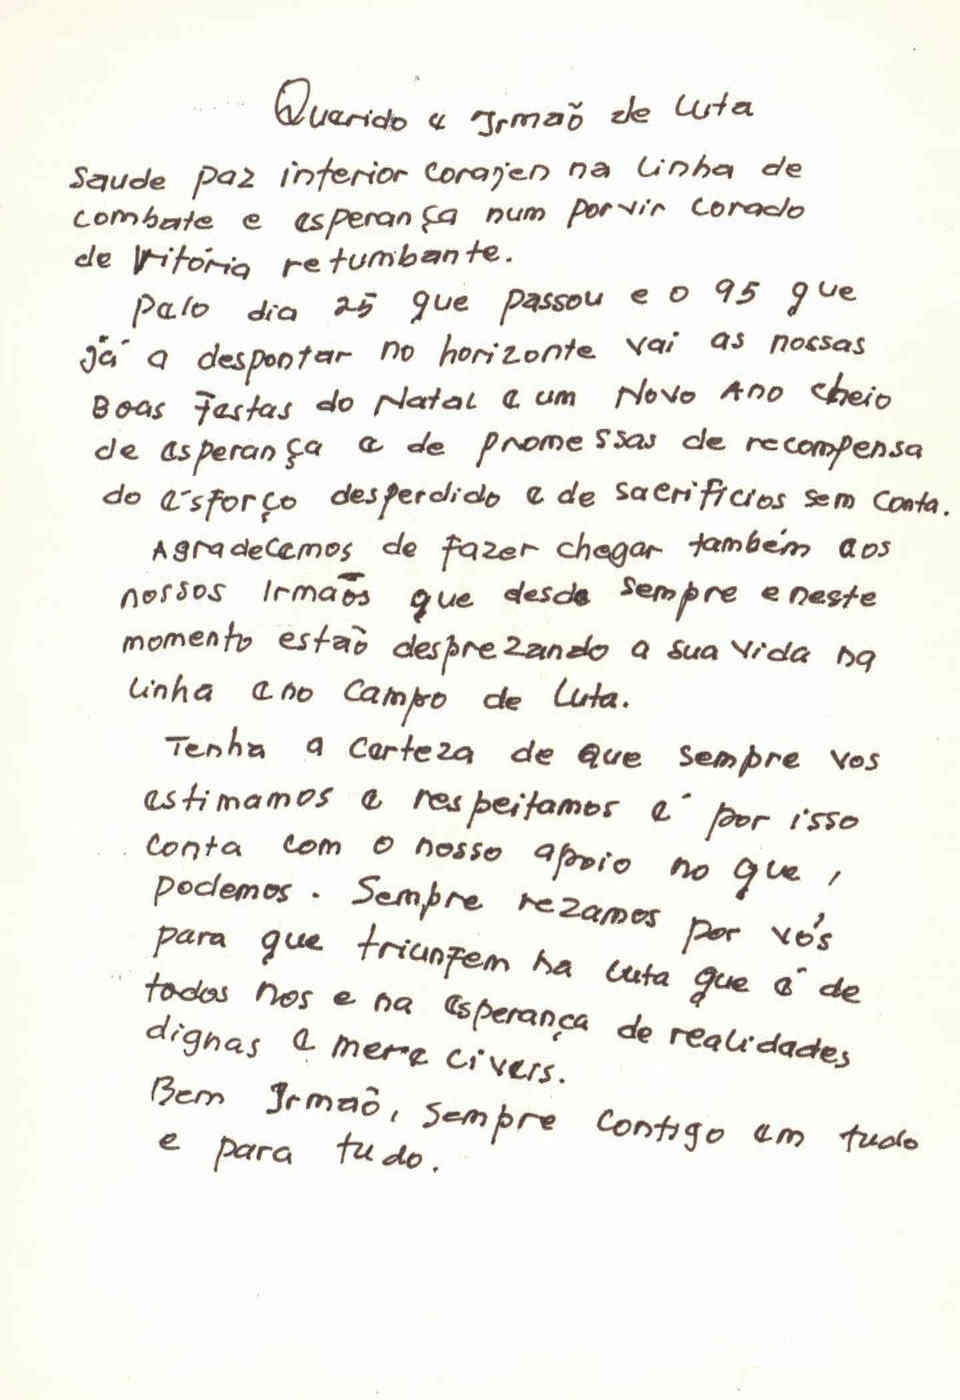 Querido e Irmão de Luta
Saude paz interior corajen na linha de
combate e esperança num porvir corado
de Vitória retumbante.
Pelo dia 25 que passou e o 95 que
já a despontar no horizonte vai as nossas
Boas Festas do Natal e um Novo Ano cheio
de esperança e de promessas de recompensa
do esforço desperdido e de sacrificios sem conta.
Agradecemos de fazer chegar também aos
nossos Irmãos que desde sempre e neste
momento estão desprezando a sua vida na
linha e no campo de luta.
Tenha a certeza de que sempre vos
estimamos e respeitamos é por isso
conta com o nosso apoio no que,
podemos. Sempre rezamos por vós
para que triunfem na luta que é de
todos nos e na esperança de realidades
dignas e merecivers.
Bem Irmaõ, sempre contigo em tudo
e para tudo.